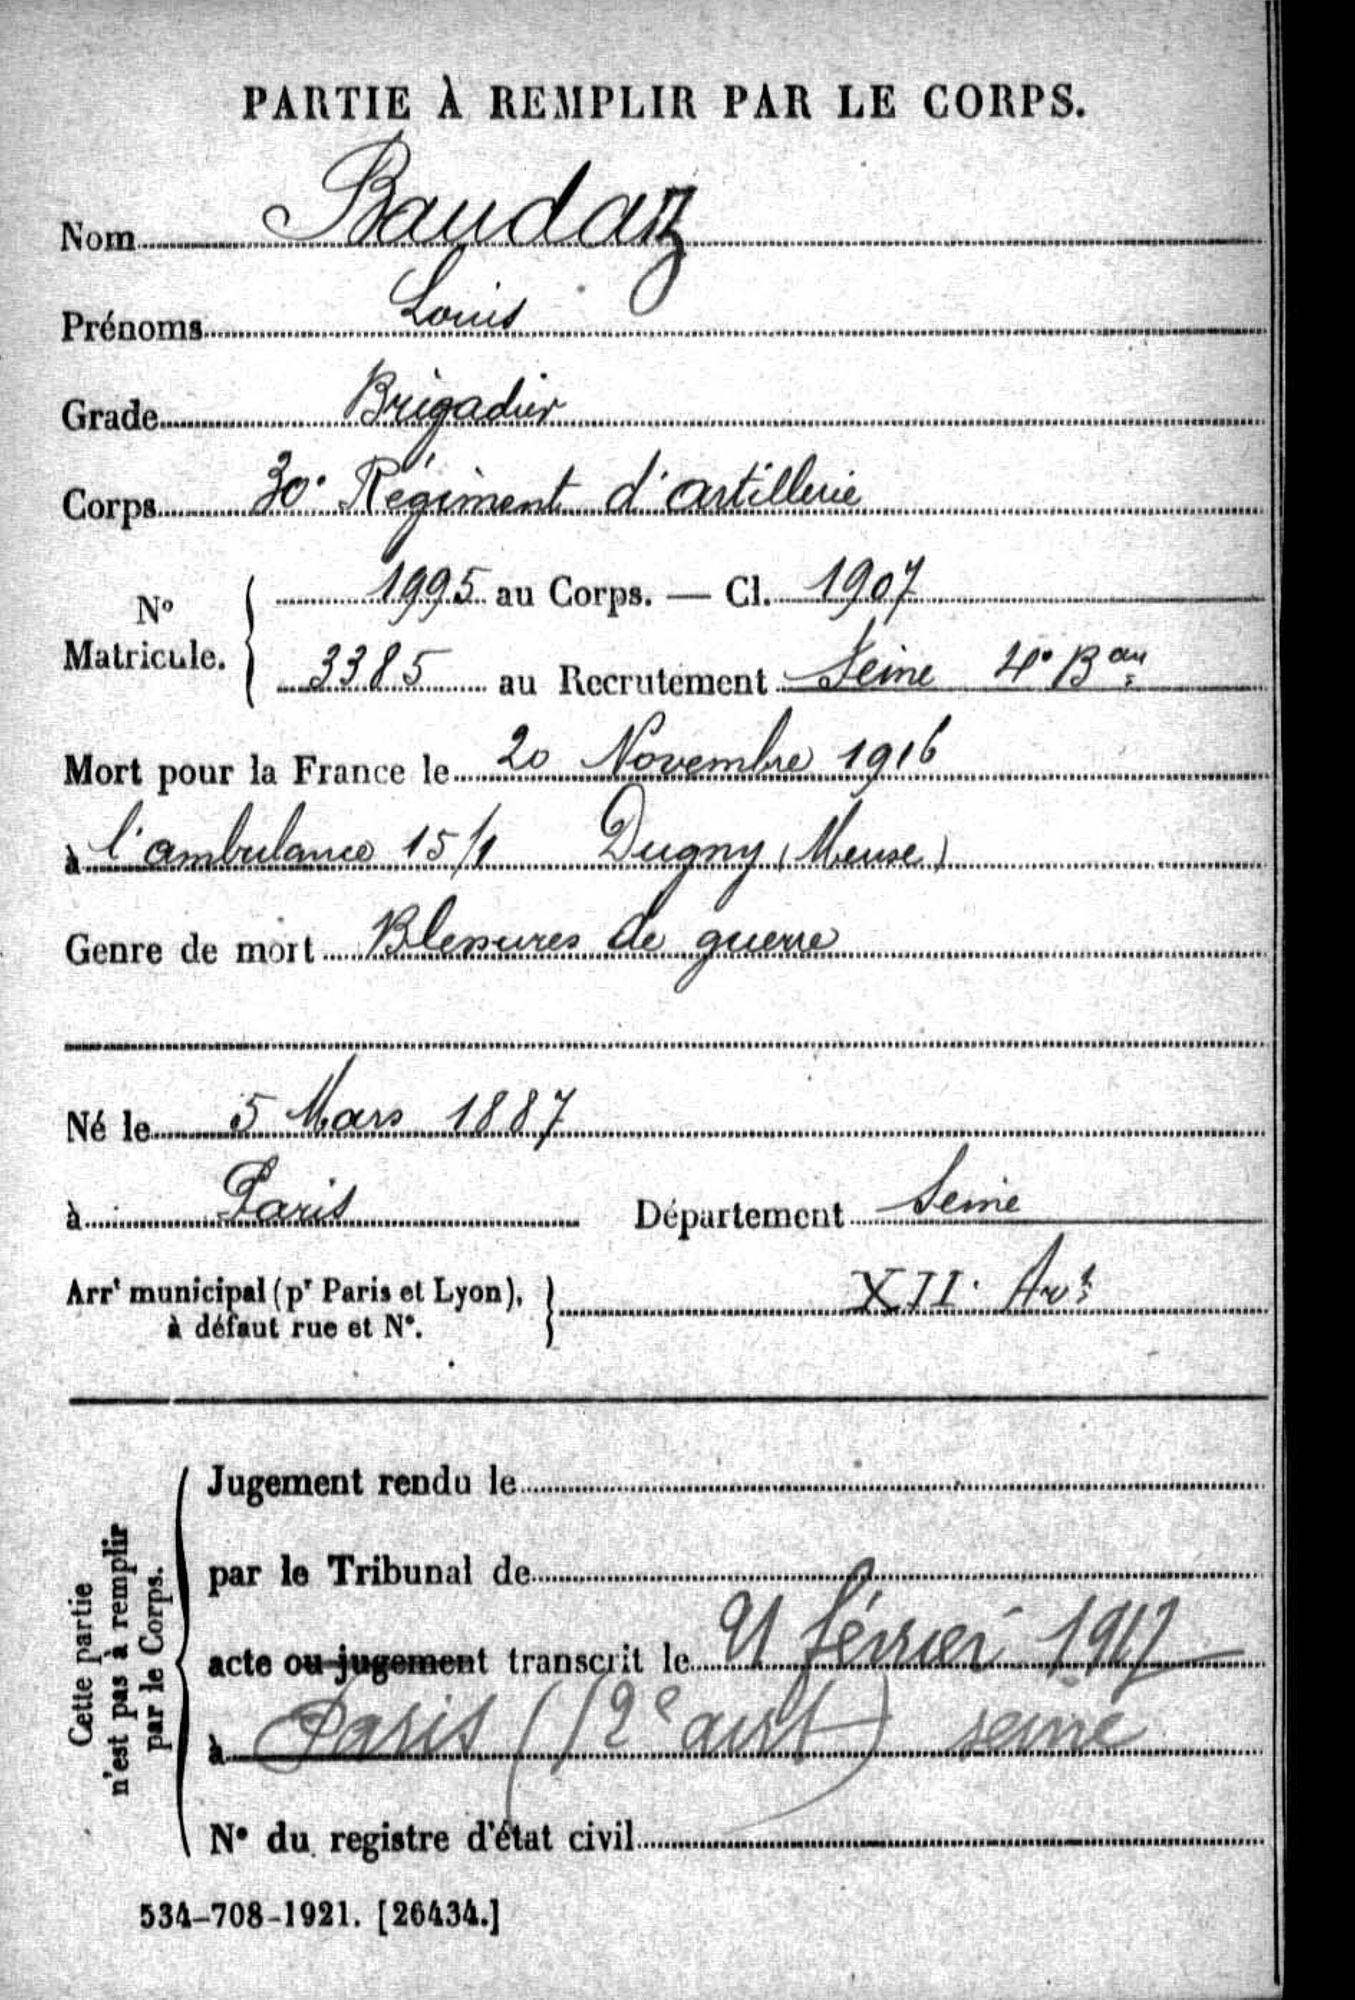 PARTIE À REMPLIR PAR LE CORPS.
Nom Baudaz
Prénoms Louis
Grade Brigadier
Corps 30e Régiment d'artillerie
No Matricule. { 1995 au Corps. — Cl. 1907
3385 au Recrutement Seine 4e Bau
Mort pour la France le 20 Novembre 1916
à l'ambulance 15/1 Dugny (Meuse)
Genre de mort Blessures de guerre
Né le 5 Mars 1887
à Paris Département Seine
Arrt municipal (pr Paris et Lyon), } XIIe Arrt
à défaut rue et No.
Cette partie n'est pas à remplir par le Corps.
Jugement rendu le
par le Tribunal de
acte ou jugement transcrit le février 1917
à Paris (12e arrt) seine
No du registre d'état civil
534-708-1921. [26434.]